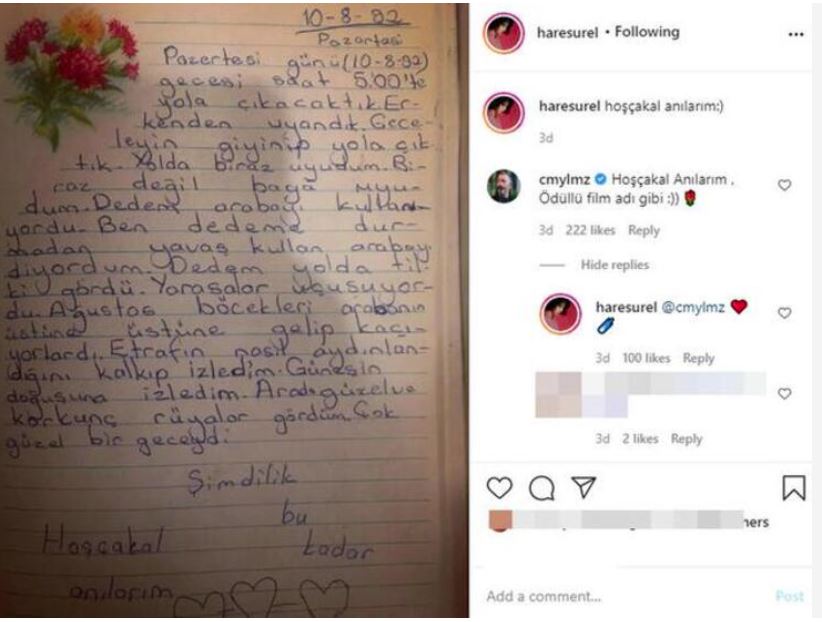 10-8-92
Pazartesi
Pazertesi günü (10-8-92)
gecesi saat 5.00'te
yola çıkacaktık. Er-
kenden uyandık. Gece-
leyin giyinip yola çık
tık. Yolda biraz uyudum. Bi-
raz değil bağa uyu-
dum. Dedem arabayı kullanı-
yordu. Ben dedeme dur-
madan yavaş kullan arabayı
diyordum. Dedem yolda til-
ki gördü. Yarasalar uçuşuyor-
du. Ağustos böcekleri arabanın
üstüne üstüne gelip kaçı-
yorlardı. Etrafın nasıl aydınlan-
dığını kalkıp izledim. Güneşin
doğuşunu izledim. Arada güzel ve
korkunç rüyalar gördüm. Çok
güzel bir geceydi.
Şimdilik
bu
kadar
Hoşçakal
anılarım
haresurel • Following
haresurel hoşçakal anılarım:)
3d
cmylmz Hoşçakal Anılarım .
Ödüllü film adı gibi :)) 🌹
3d 222 likes Reply
Hide replies
haresurel @cmylmz ❤️
3d 100 likes Reply
3d 2 likes Reply
hers
Add a comment... Post